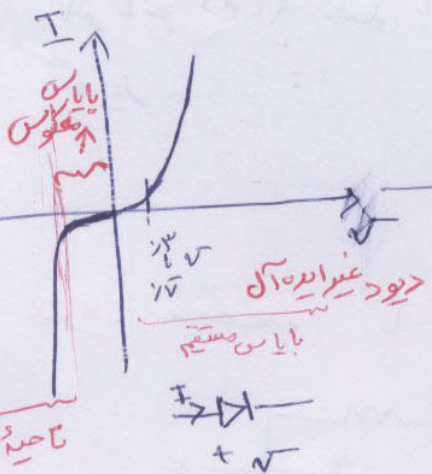 I
بایاس
معکوس
۰/۳
تا
۰/۷
V
V
دیود غیر ایده‌آل
بایاس مستقیم
I
+ V
ناحیهٔ